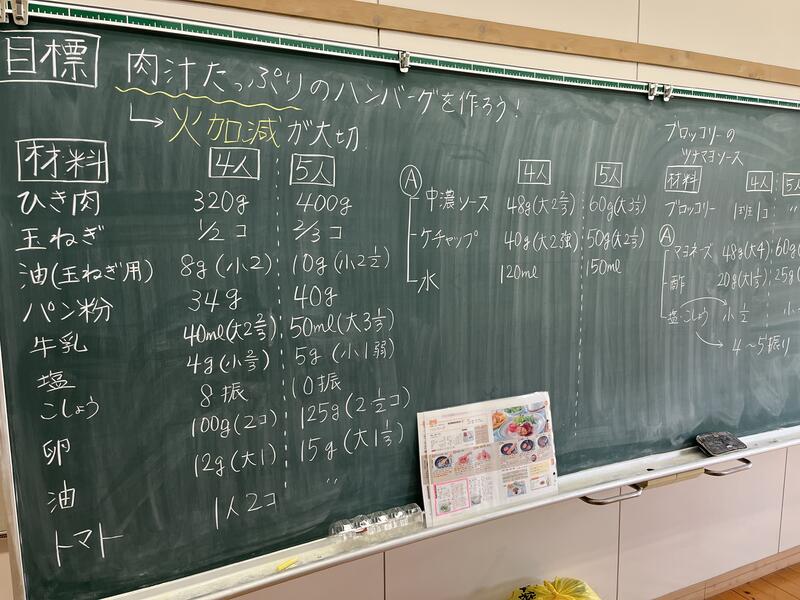 目標 肉汁たっぷりのハンバーグを作ろう!
→火加減が大切
材料 4人 5人
ひき肉 320g 400g
玉ねぎ 1/2コ 2/3コ
油(玉ねぎ用) 8g(小2) 10g(小2 1/2)
パン粉 34g 40g
牛乳 40ml(大2 2/3) 50ml(大3 1/3)
塩 4g(小2/3) 5g(小1弱)
こしょう 8振 10振
卵 100g(2コ) 125g(2 1/2コ)
油 12g(大1) 15g(大1 1/3)
トマト 1人2コ 〃
4人 5人
Ⓐ 中濃ソース 48g(大2 2/3) 60g(大3 1/3)
ケチャップ 40g(大2強) 50g(大2 1/3)
水 120ml 150ml
ブロッコリーの
ツナマヨソース
材料 4人 5人
ブロッコリー 1コ 〃
Ⓐ
マヨネーズ 48g(大4) 60g
酢 20g(大1 1/3) 25g
塩こしょう 小1/2 小
4〜5振り